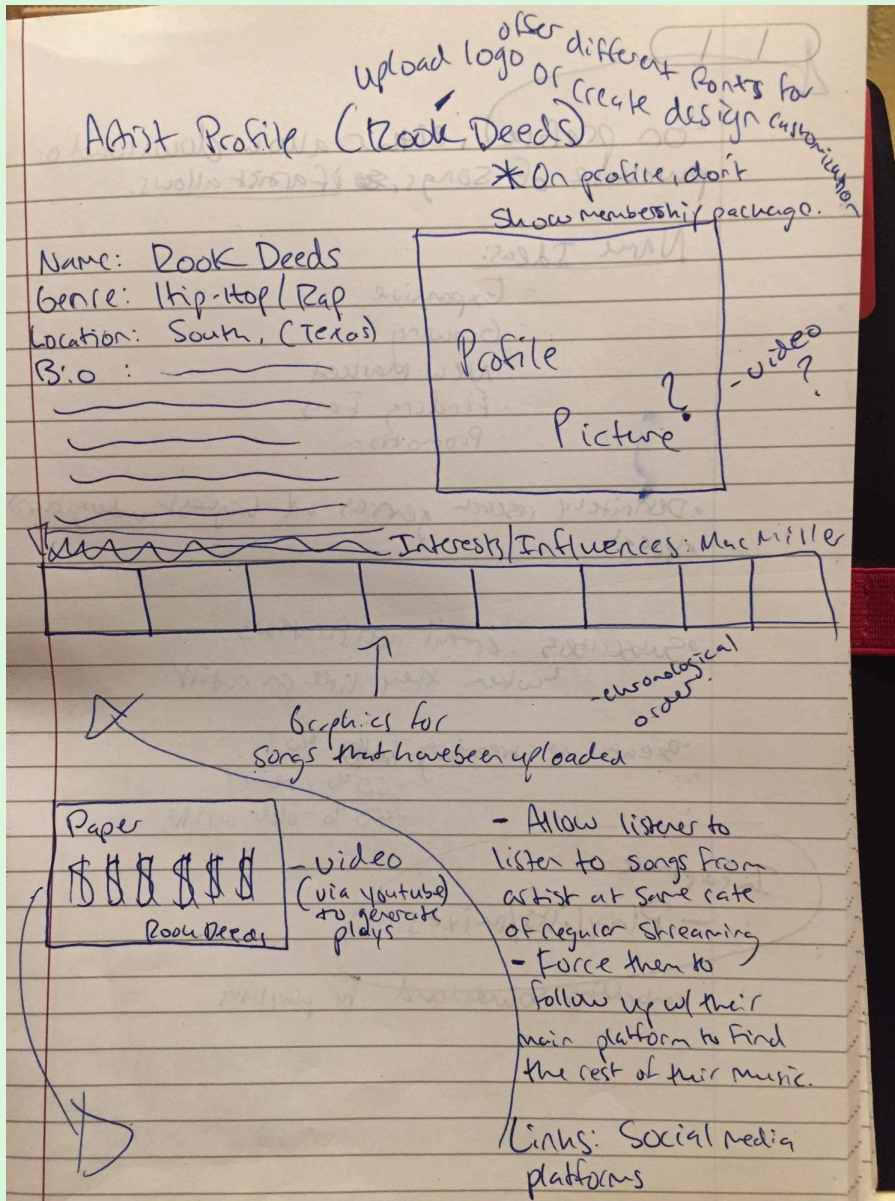 upload logo or create design
offer different fonts for customization
Artist Profile (Rook Deeds)
* On profile, don't
show membership package.
Name: Rook Deeds
Genre: Hip-Hop/Rap
Location: South, (Texas)
Bio :
Profile
Picture?
- video
?
Interests/Influences: Mac Miller
- chronological
order.
Graphics for
songs that have been uploaded
Paper
$ $ $ $ $ $
Rook Deeds
- video
(via youtube)
to generate
plays
- Allow listener to
listen to songs from
artist at same rate
of regular streaming
- Force them to
follow up w/ their
main platform to find
the rest of their music.
Links: Social media
platforms